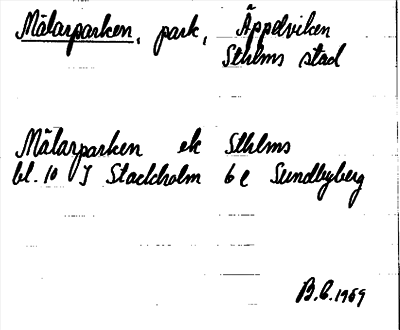 Mälarparken, park, Äppelviken
Sthlms stad
Mälarparken ek Sthlms
bl. 10 I Stockholm 6e Sundbyberg
B.C. 1969